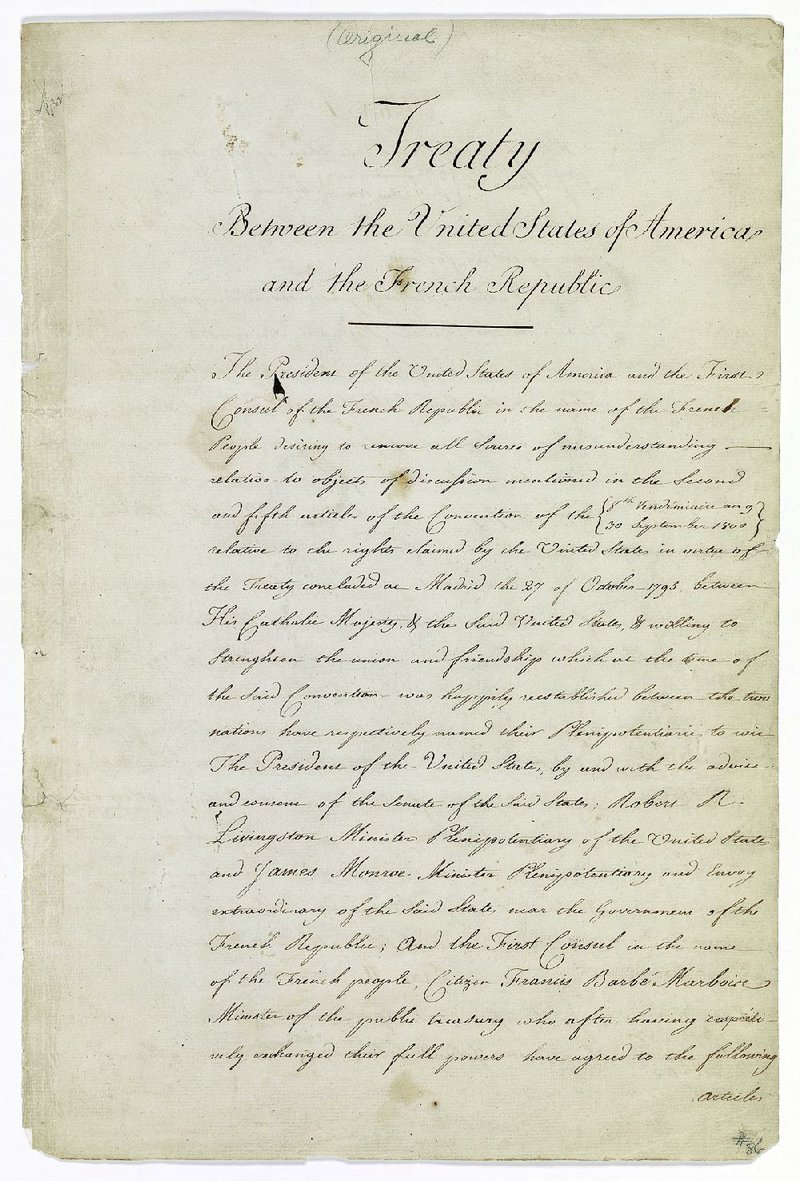 (Original)
Treaty
Between the United States of America
and the French Republic
The President of the United States of America and the First
Consul of the French Republic in the name of the French
People desiring to remove all Source of misunderstanding
relative to objects of discussion mentioned in the Second
and fifth articles of the Convention of the {8th Vendémiaire an 9
30 September 1800}
relative to the rights claimed by the United States in virtue of
the Treaty concluded at Madrid the 27 of October 1795, between
His Catholic Majesty, & the Said United States, & willing to
Strenghten the union and friendship which at the time of
the Said Convention was happily reestablished between the two
nations have respectively named their Plenipotentiaries to wit
The President of the United States, by and with the advice
and consent of the Senate of the Said States; Robert R.
Livingston Minister Plenipotentiary of the United States
and James Monroe Minister Plenipotentiary and Envoy
extraordinary of the Said States near the Government of the
French Republic; And the First Consul in the name
of the French people, Citizen Francis Barbé Marbois
Minister of the public treasury who after having respecti-
vely exchanged their full powers have agreed to the following
articles